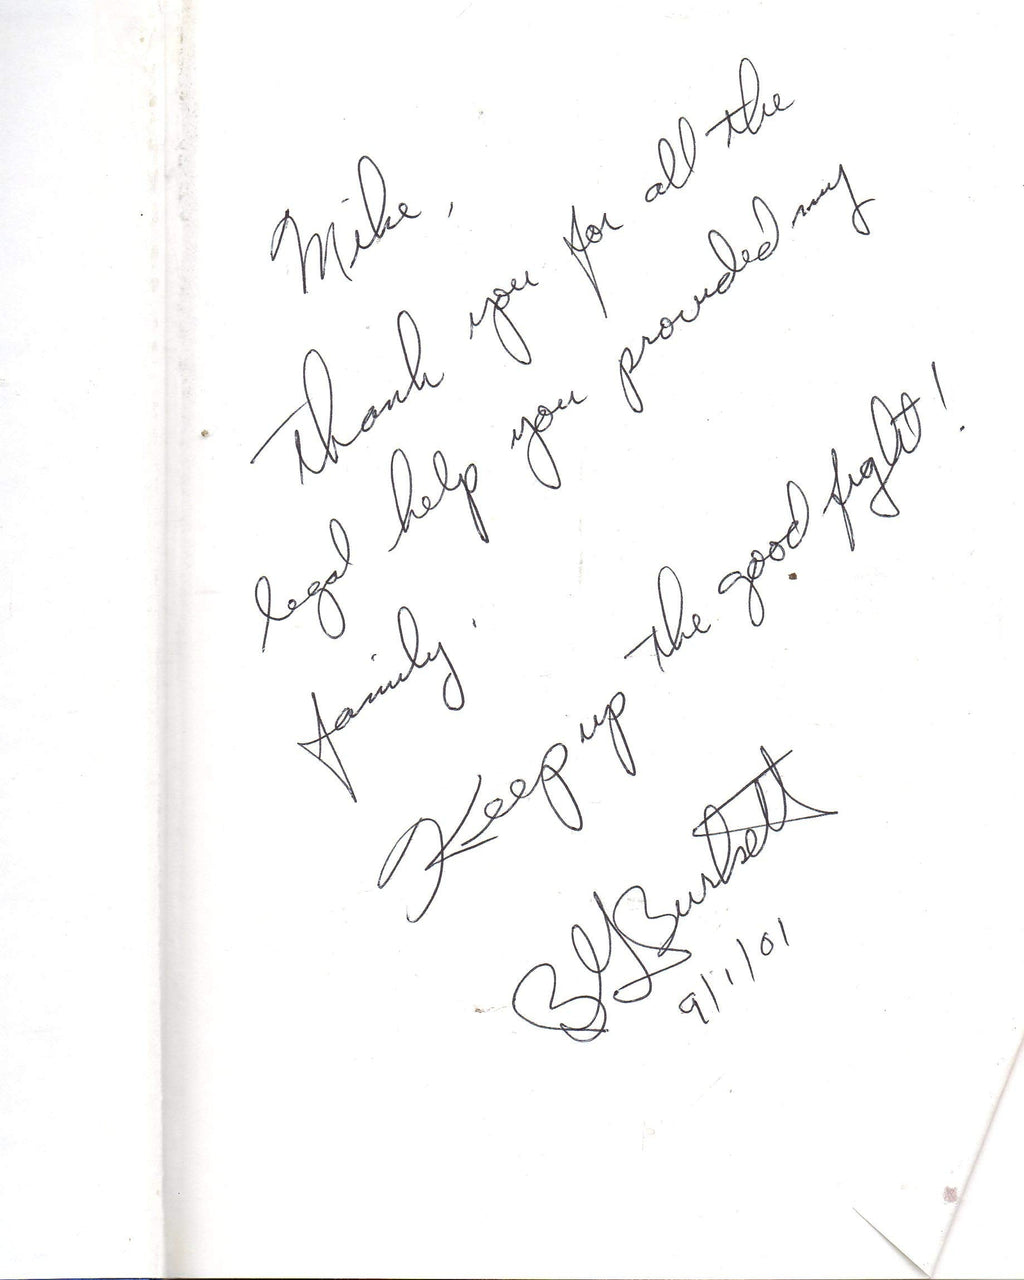 Mike,
Thank you for all the
legal help you provided my
family.
Keep up the good fight!
BG Burkett
9/1/01